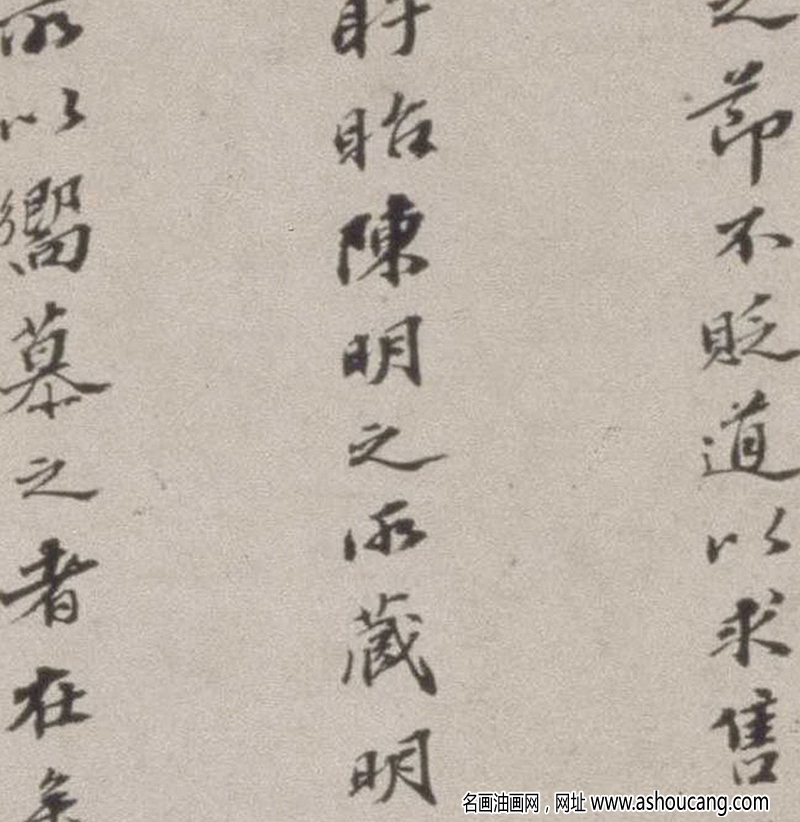 之節不貶道以求售
盱眙陳明之所藏明
所以嚮慕之者在矣
名画油画网，网址 www.ashoucang.com